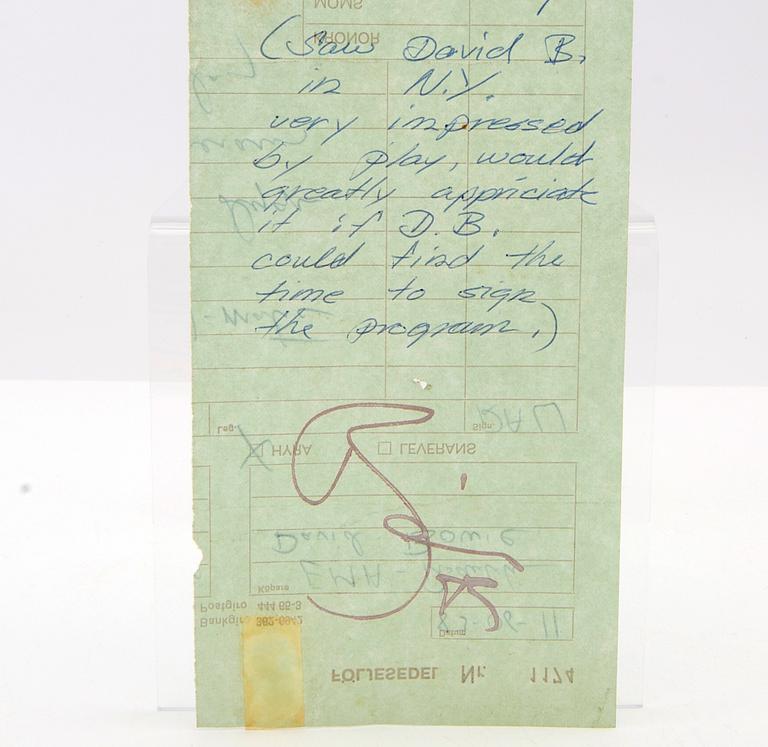 MOMS
KRONOR
(Saw David B.
in N.Y.
very impressed
by play, would
greatly appriciate
it if D.B.
could find the
time to sign
the program.)
Leg.
Sign.
RAU
HYRA LEVERANS
David Bowie
EMA -
Köpare
Postgiro 444 65-3
Bankgiro 362-6942
Datum
83-06-11
FÖLJESEDEL Nr. 1174